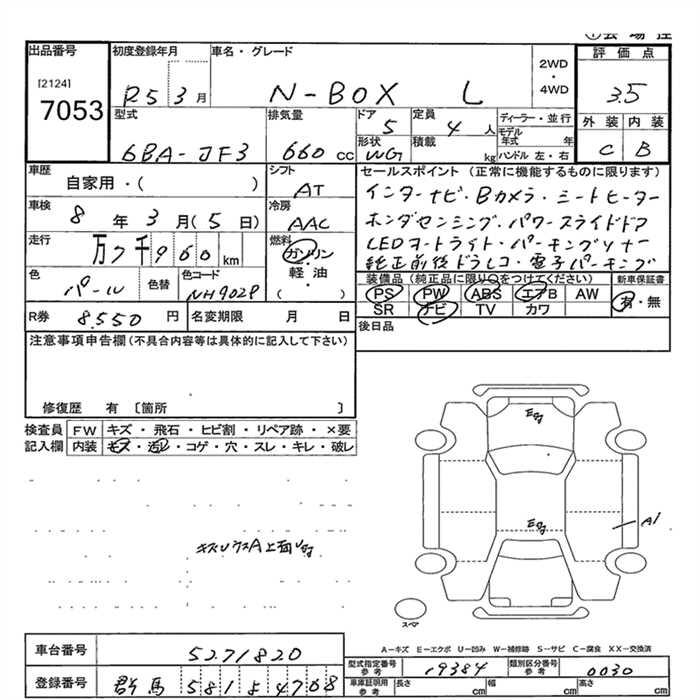 出品番号 初度登録年月 車名・グレード 評価点
[2124] 2WD・4WD
7053 R5 3月 N-BOX L 3.5
型式 排気量 ドア 定員 ディーラー・並行 外装 内装
6BA-JF3 660cc 5 4人 モデル年式 年 C B
形状 積載
WG kg ハンドル 左・右
車歴 シフト セールスポイント(正常に機能するものに限ります)
自家用・( ) AT インターナビ・Bカメラ・シートヒーター
車検 8年3月(5日) 冷房 AAC ホンダセンシング・パワースライドドア
走行 万7千960km 燃料 ガソリン・軽油・( ) LEDオートライト・パーキングソナー
純正前後ドラレコ・電子パーキング
色 パール 色替 色コード NH902P
装備品(純正品に限り○をつけてください) 新車保証書
PS PW ABS エアB AW 有・無
SR ナビ TV カワ
R券 8,550円 名変期限 月 日 後日品
注意事項申告欄(不具合内容等は具体的に記入して下さい)
修復歴 有 〔箇所 〕
検査員 FW キズ・飛石・ヒビ割・リペア跡・×要
記入欄 内装 キズ・汚レ・コゲ・穴・スレ・キレ・破レ
A1
スペア
A-キズ E-エクボ U-凹み W-補修跡 S-サビ C-腐食 XX-交換済
車台番号 5271820 型式指定番号 参考 19384 類別区分番号 参考 0030
登録番号 群馬 581 4708 車庫証明用 参考 長さ cm 幅 cm 高さ cm